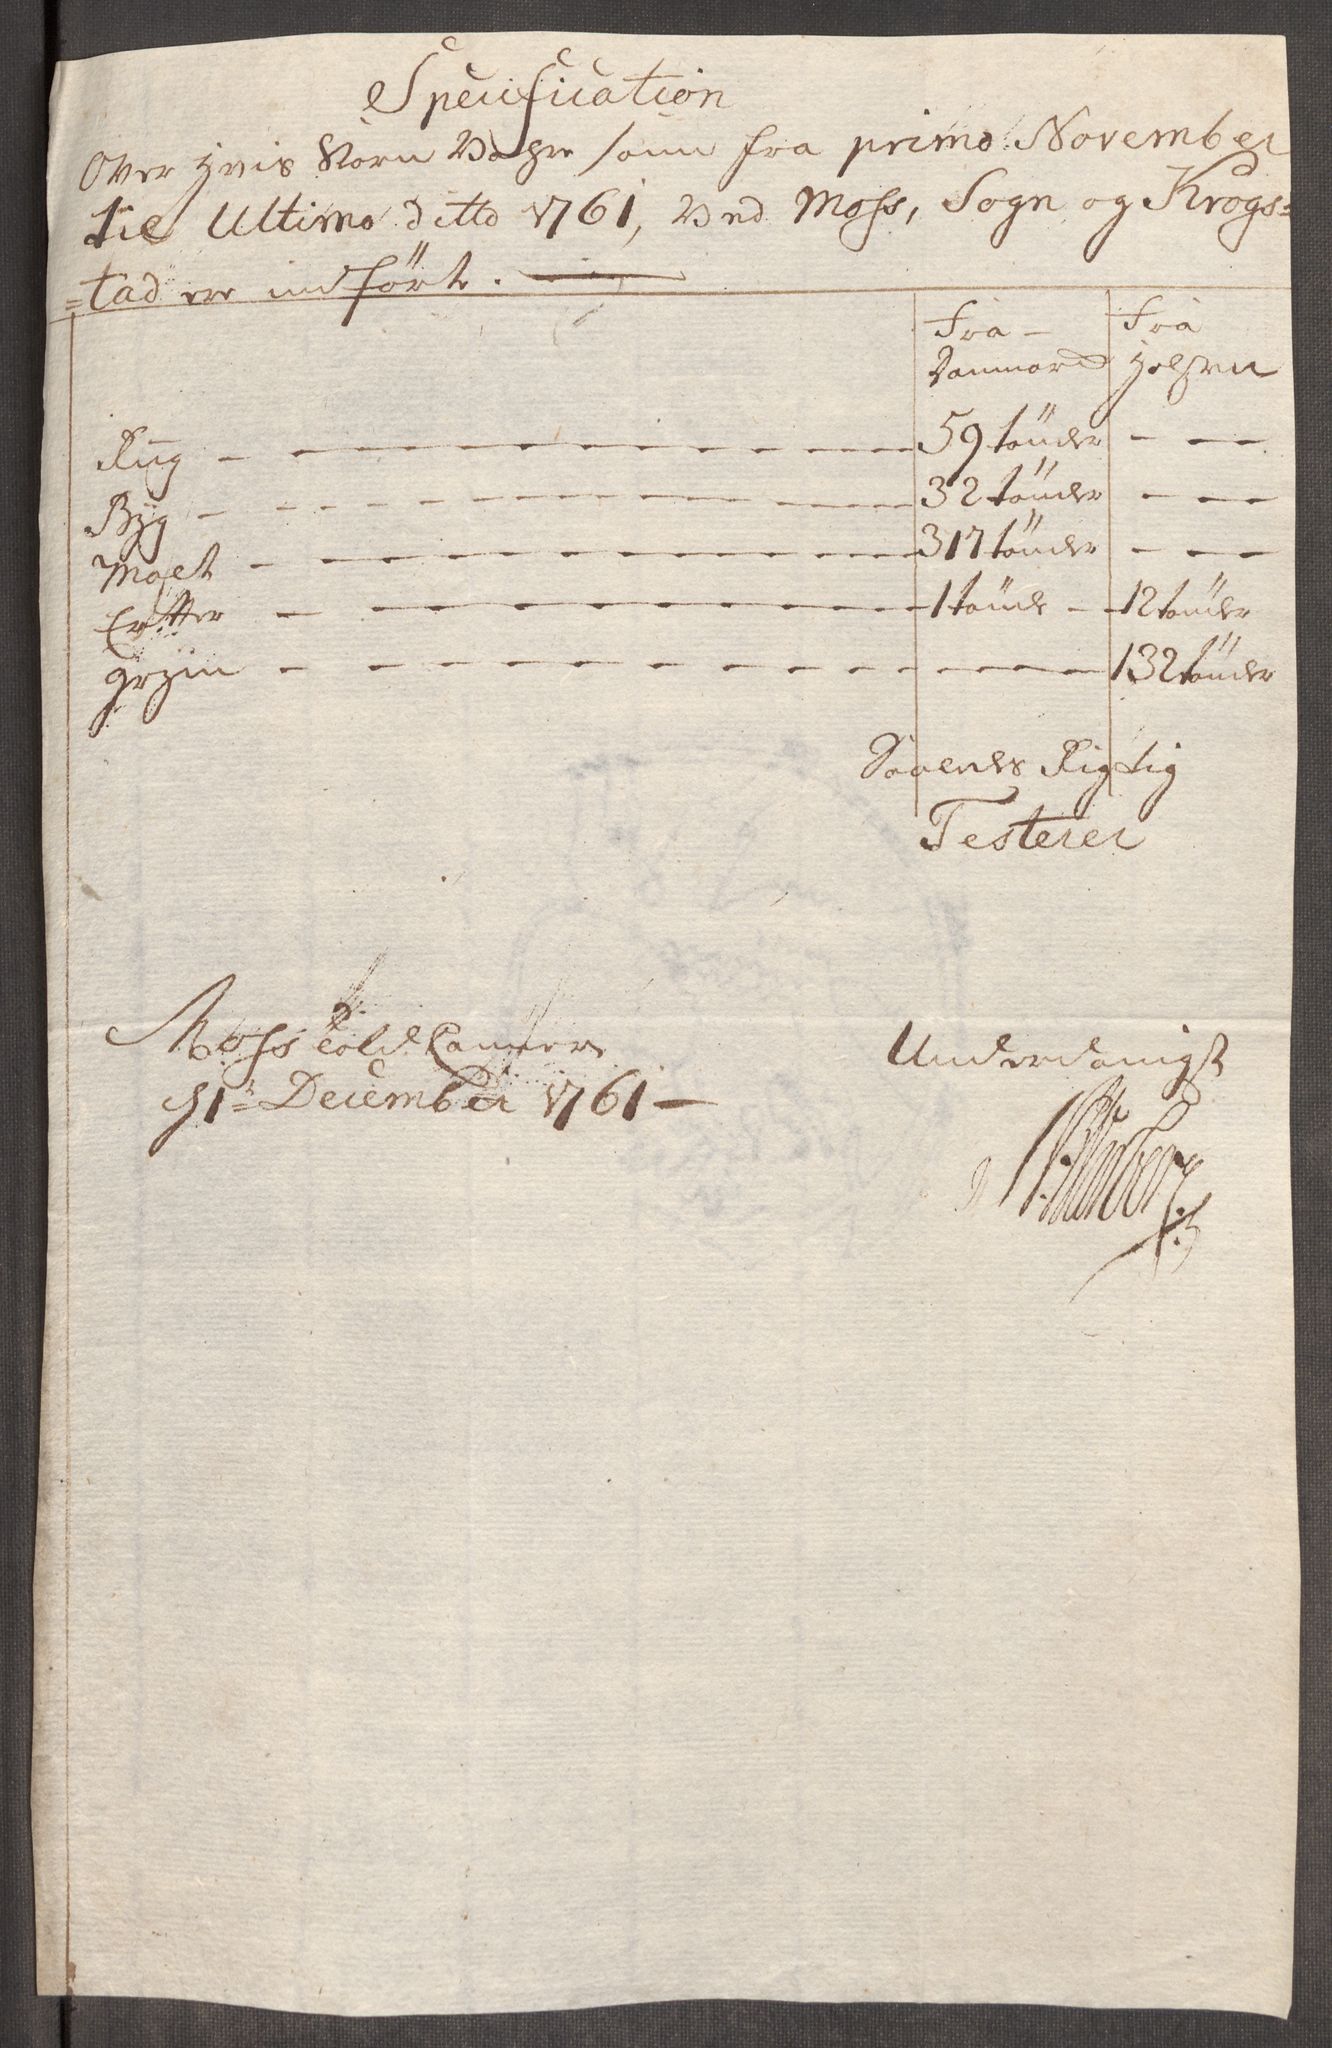 Specification
Over hvis Korn Vahre som fra primo November
til Ultimo ditto 1761, Ved Moss, Sogn og Krogs=
=tad ere indført.
Fra Danmarck
Fra Holsten
Rug 59 tönder
Byg 32 tönder
Malt 317 tönder
Ertter 1 tönde 12 tönder
Gryn 132 tönder
Saaledes Rigtig
Testerer
Moss Told Cammer
31t December 1761
Underdanigst